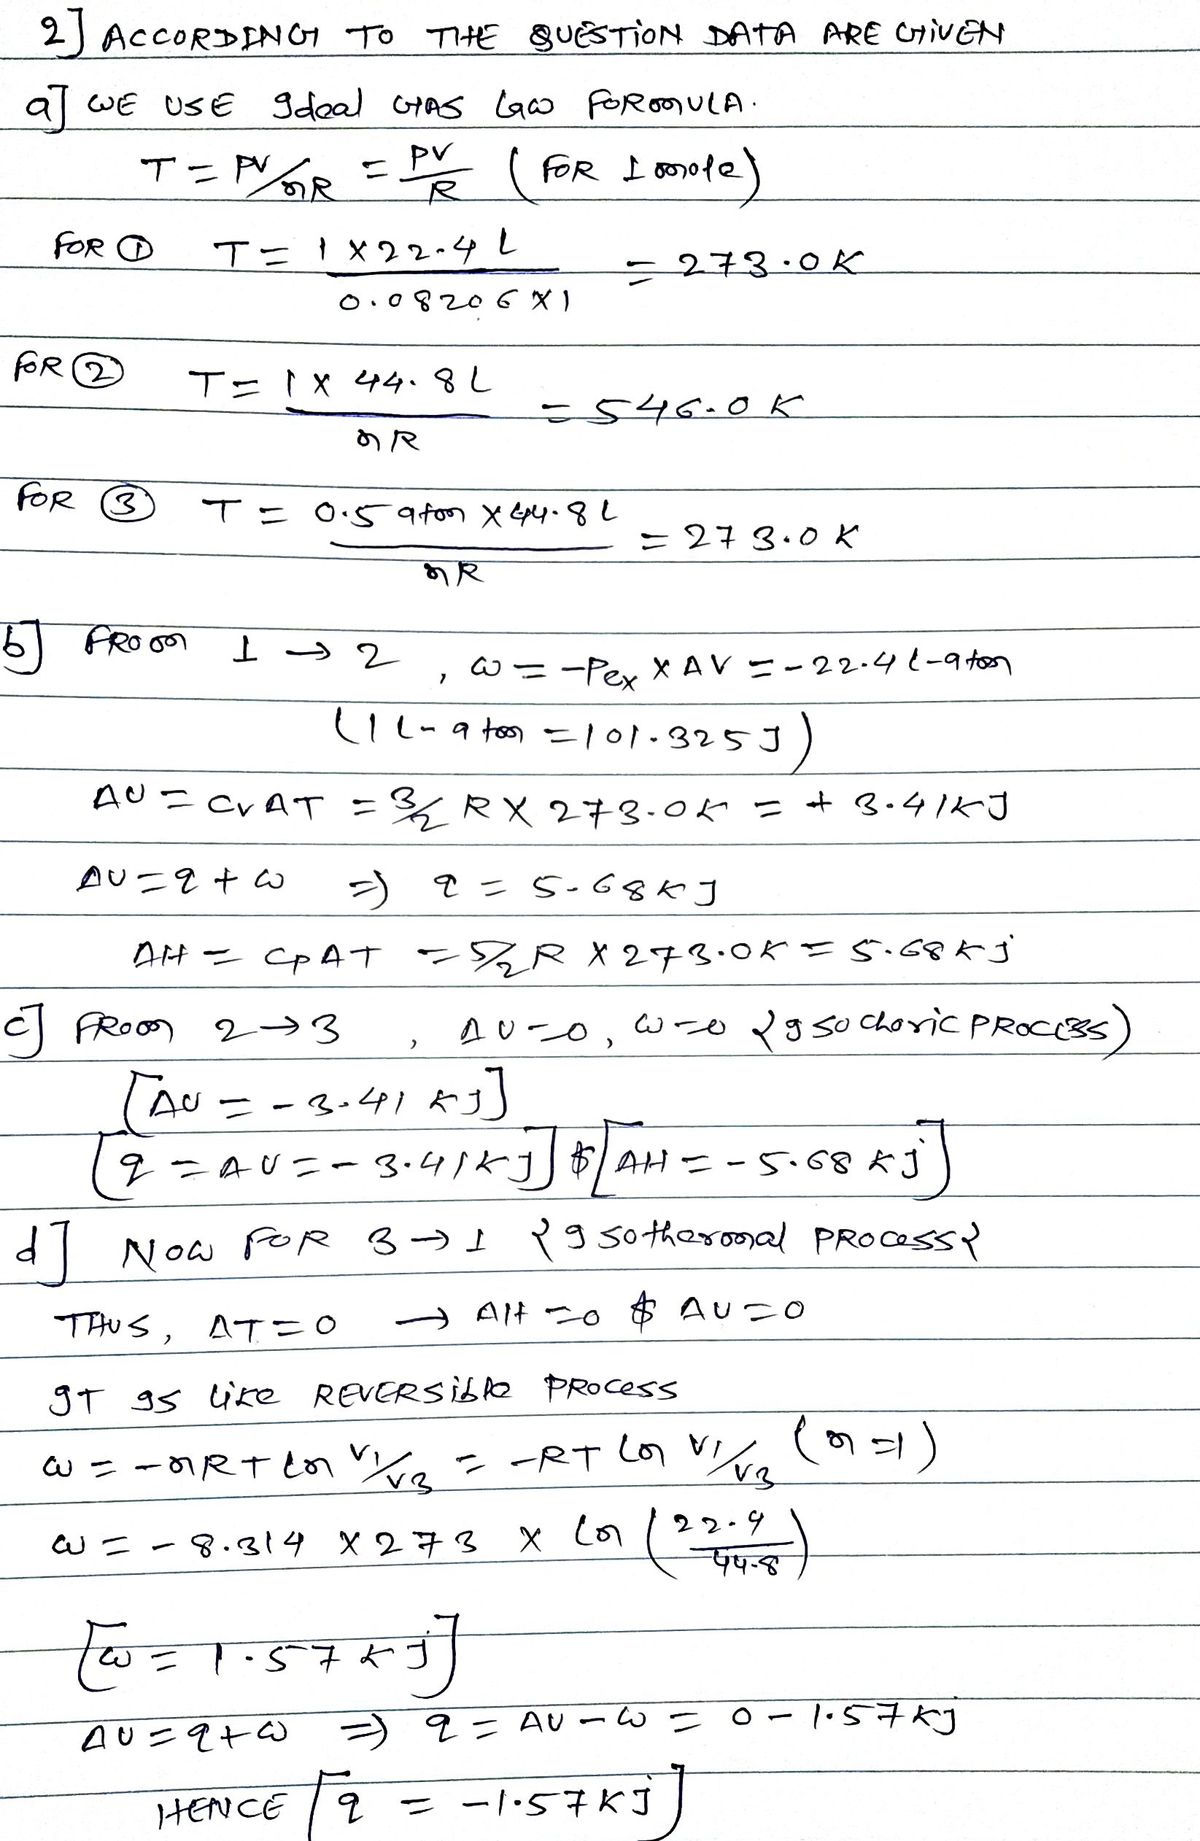 2] ACCORDING TO THE QUESTION DATA ARE GIVEN
a] WE USE Ideal GAS Law FORMULA.
T = PV/nR = PV/R (FOR 1 mole)
FOR ① T = 1 × 22.4 L / 0.08206 × 1 = 273.0 K
FOR ② T = 1 × 44.8 L / nR = 546.0 K
FOR ③ T = 0.5 atm × 44.8 L / nR = 273.0 K
b] FROM 1 → 2 , ω = -Pex × ΔV = -22.4 L-atm
(1 L-atm = 101.325 J)
ΔU = CvΔT = 3/2 R × 273.0K = + 3.41KJ
ΔU = q + ω ⇒ q = 5.68KJ
ΔH = CpΔT = 5/2 R × 273.0K = 5.68KJ
c] FROM 2 → 3 , ΔU=0, ω=0 {Isochoric PROCESS)
[ΔU = -3.41 KJ]
[q = ΔU = -3.41KJ] & [ΔH = -5.68 KJ]
d] NOW FOR 3 → 1 {Isothermal PROCESS}
THUS, ΔT = 0 → ΔH = 0 & ΔU = 0
IT IS like REVERSible PROCESS
ω = -nRT ln V1/V3 = -RT ln V1/V3 (n=1)
ω = -8.314 × 273 × ln (22.4/44.8)
[ω = 1.57 KJ]
ΔU = q + ω ⇒ q = ΔU - ω = 0 - 1.57KJ
HENCE [q = -1.57KJ]